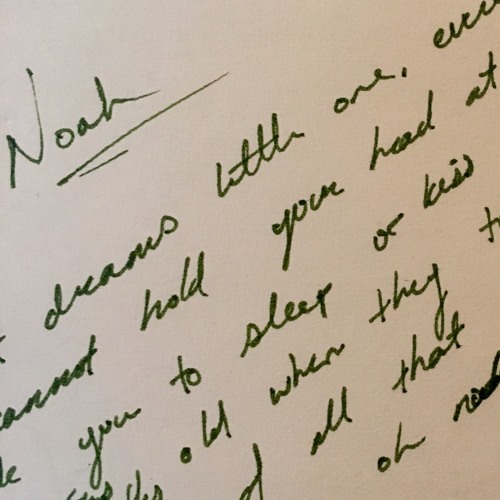 Noah
dreams little one,
cannot hold your head at
you to sleep or kiss
old when they
of all that
oh